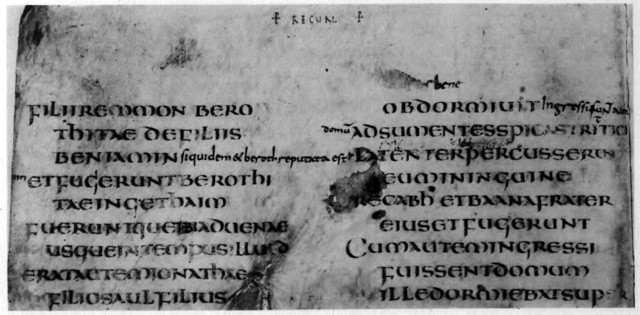 ‡ REGUM ‡
FILII REMMON BERO
THITAE DE FILIIS
BENIAMIN siquidem & beroth reputata est
ET FUGERUNT BEROTHI
TAE IN GETHAIM
FUERUNTQUE IBI ADUENAE
USQUE IN TEMPUS ILLUD
ERAT AUTEM IONATHAE
FILIO SAUL FILIUS
bene
OBDORMIUIT Ingressi sunt
domum ADSUMENTES SPICAS TRITICI
LATENTER PERCUSSERUN
EUM IN INGUINE
RECABH ET BAANA FRATER
EIUS ET FUGERUNT
CUM AUTEM INGRESSI
FUISSENT DOMUM
ILLE DORMIEBAT SUPER